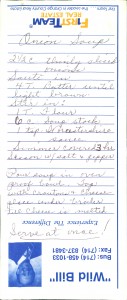 FIRST TEAM
REAL ESTATE
Onion Soup
2½ c. Thinly sliced
onions
Saute in
4 T. Butter until
light brown
Stir in:
6 c. Soup stock
1 tsp Worcestershire
sauce
Simmer covered
Season w/ salt & pepper
Pour soup in oven
proof bowl. Top
with croutons, cheese
place under broiler
Til cheese is melted
Serve at once!
Experience The Difference
"Wild Bill"
Bus: (714) 458-1033
Fax: (714) 837-3481